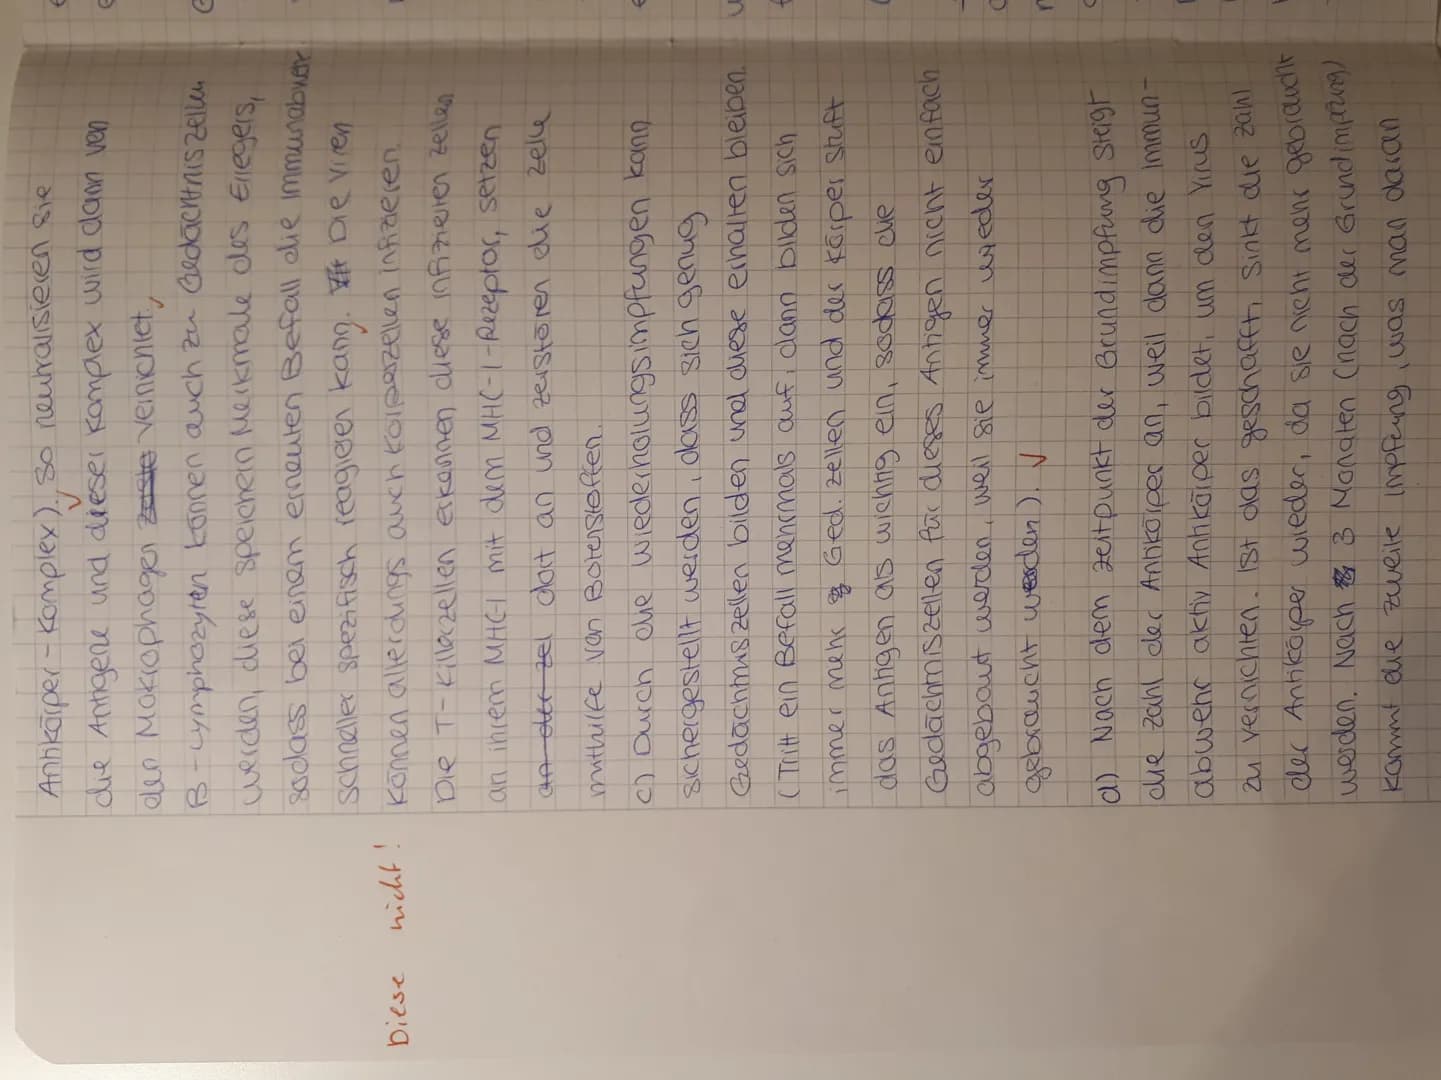 Antikörper-Komplex), so neutralisieren sie
die Antigene und dieser Komplex wird dann von
den Makrophagen vernichtet.
B-Lymphozyten können auch zu Gedächtniszellen
werden, diese speichern Merkmale des Erregers,
sodass bei einem erneuten Befall die Immunabwehr
schneller spezifisch reagieren kann. Die Viren
können allerdings auch Körperzellen infizieren.
Diese nicht!
Die T-Killerzellen erkennen diese infizierten Zellen
an ihrem MHC-I mit dem MHC-I-Rezeptor, setzen
an der Ze dort an und zerstören die Zelle
mithilfe von Botenstoffen.
c) Durch die Wiederholungsimpfungen kann
sichergestellt werden, dass sich genug
Gedächtniszellen bilden und diese erhalten bleiben.
(Tritt ein Befall mehrmals auf, dann bilden sich
immer mehr Ged.zellen und der Körper stuft
das Antigen als wichtig ein, sodass die
Gedächtniszellen für dieses Antigen nicht einfach
abgebaut werden, weil sie immer wieder
gebraucht werden).
d) Nach dem Zeitpunkt der Grundimpfung steigt
die Zahl der Antikörper an, weil dann die Immun-
abwehr aktiv Antikörper bildet, um den Virus
zu vernichten. Ist das geschafft, sinkt die Zahl
der Antikörper wieder, da sie nicht mehr gebraucht
werden. Nach 3 Monaten (nach der Grundimpfung)
kommt die zweite Impfung, was man daran